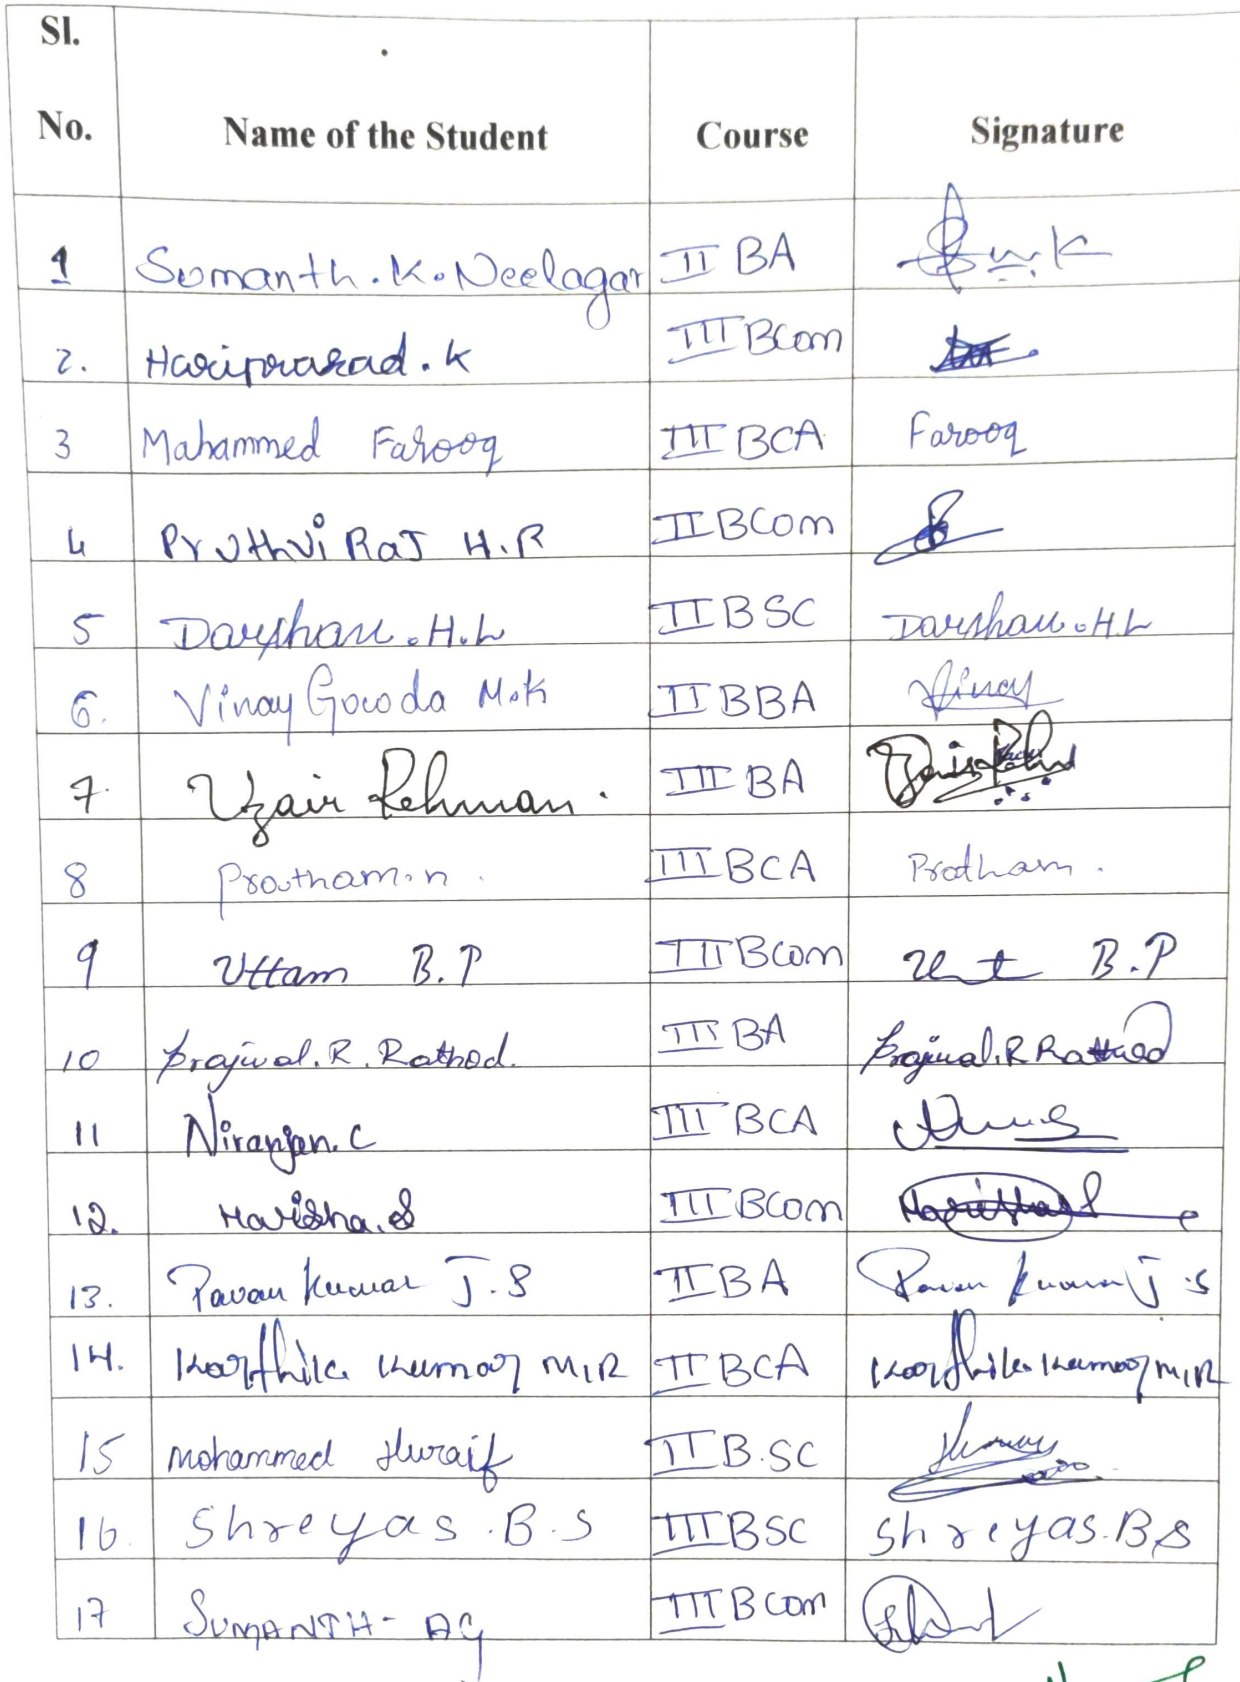 Sl. No. Name of the Student Course Signature
1 Sumanth.K.Neelagar II BA
2. Hariprasad.K III BCom
3 Mahammed Farooq III BCA Farooq
4 Pruthvi Raj H.R II BCom
5 Darshan.H.L II BSC Darshan.H.L
6. Vinay Gowda M.K II BBA Vinay
7. Uzair Rehman. III BA
8 Pratham.n. III BCA Pratham.
9 Uttam B.P III BCom B.P
10 Prajwal.R.Rathod. III BA Prajwal.R Rathod
11 Niranjan.C III BCA
12. Harisha.S III BCom
13. Pavan Kumar J.S II BA Pavan Kumar J.S
14. Karthik Kumar M.R II BCA Karthik Kumar M.R
15 Mohammed Huraif II B.SC
16. Shreyas.B.S III BSC Shreyas.B.S
17 SUMANTH- AG III BCom